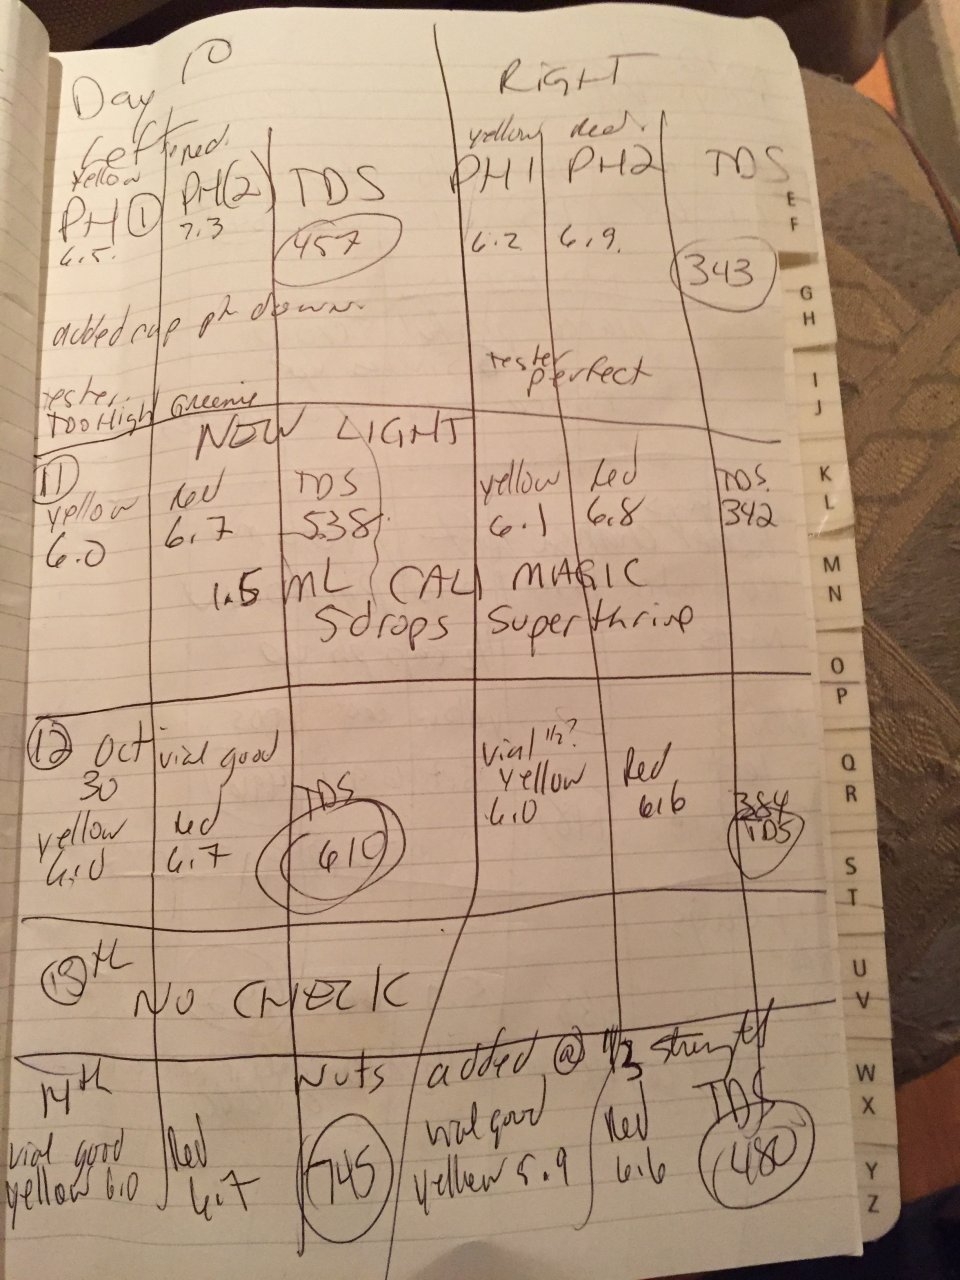 Day 10
Left
Right
yellow red.
PH① PH(2) TDS
6.5. 7.3 457
yellow Red.
PH1 PH2 TDS
6.2 6.9. 343
added cap ph down.
tester
perfect
tester
Too High Greenie
NEW LIGHT
11
yellow Red TDS
6.0 6.7 538
yellow Red TDS.
6.1 6.8 342
1.5 ML CALI MAGIC
5 drops Superthrive
12 Oct vial good
30
yellow Red TDS
6.0 6.7 610
vial 1/2?
yellow Red 384
6.0 6.6 TDS
13th
NO CHECK
14th
Nuts added @ 1/3 strength
vial good Red
yellow 6.0 6.7 745
vial good Red TDS
yellow 5.9 6.6 480
E
F
G
H
I
J
K
L
M
N
O
P
Q
R
S
T
U
V
W
X
Y
Z